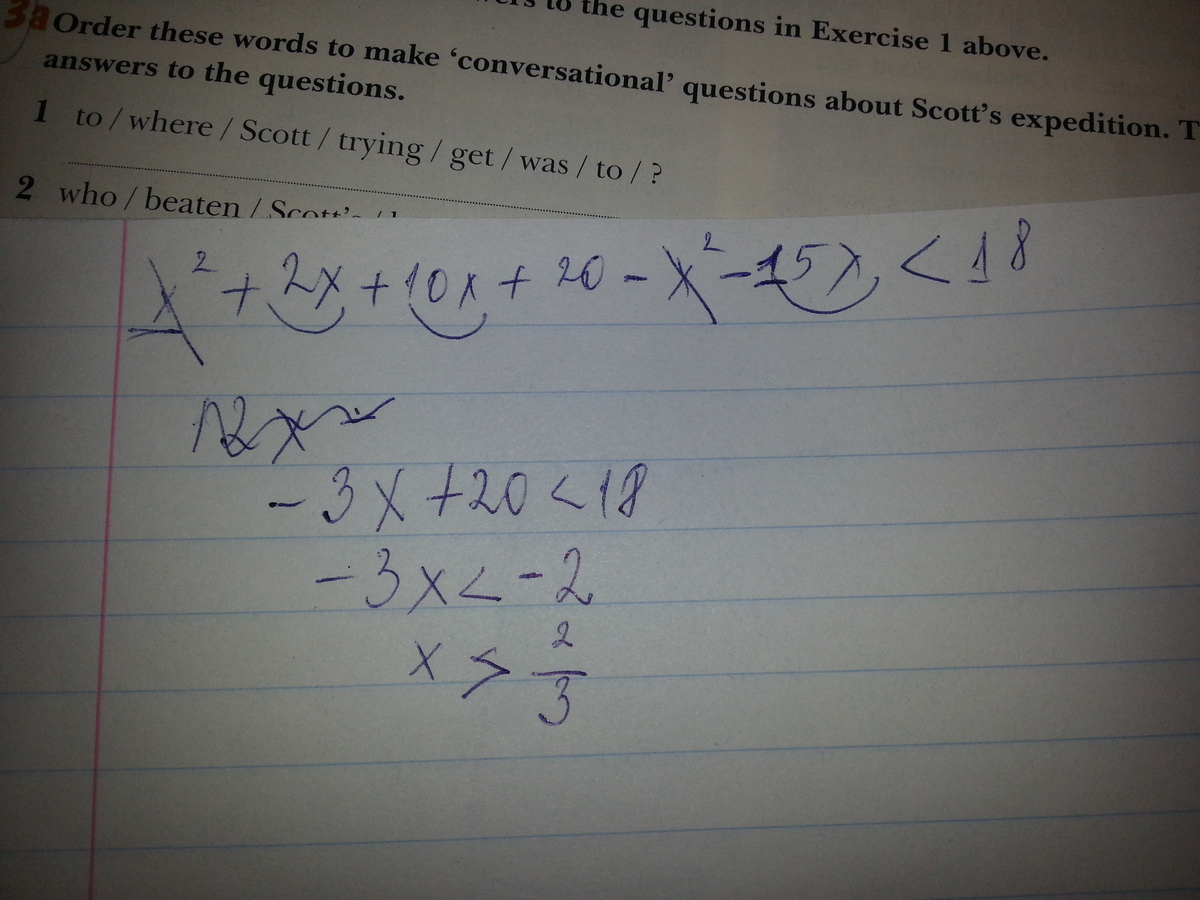 to the questions in Exercise 1 above.
3a Order these words to make ‘conversational’ questions about Scott’s expedition. T
answers to the questions.
1 to / where / Scott / trying / get / was / to / ?
2 who / beaten / Scott’s /
x² + 2x + 10x + 20 - x² - 15x < 18
12x -
- 3x + 20 < 18
- 3x < - 2
x > 2/3